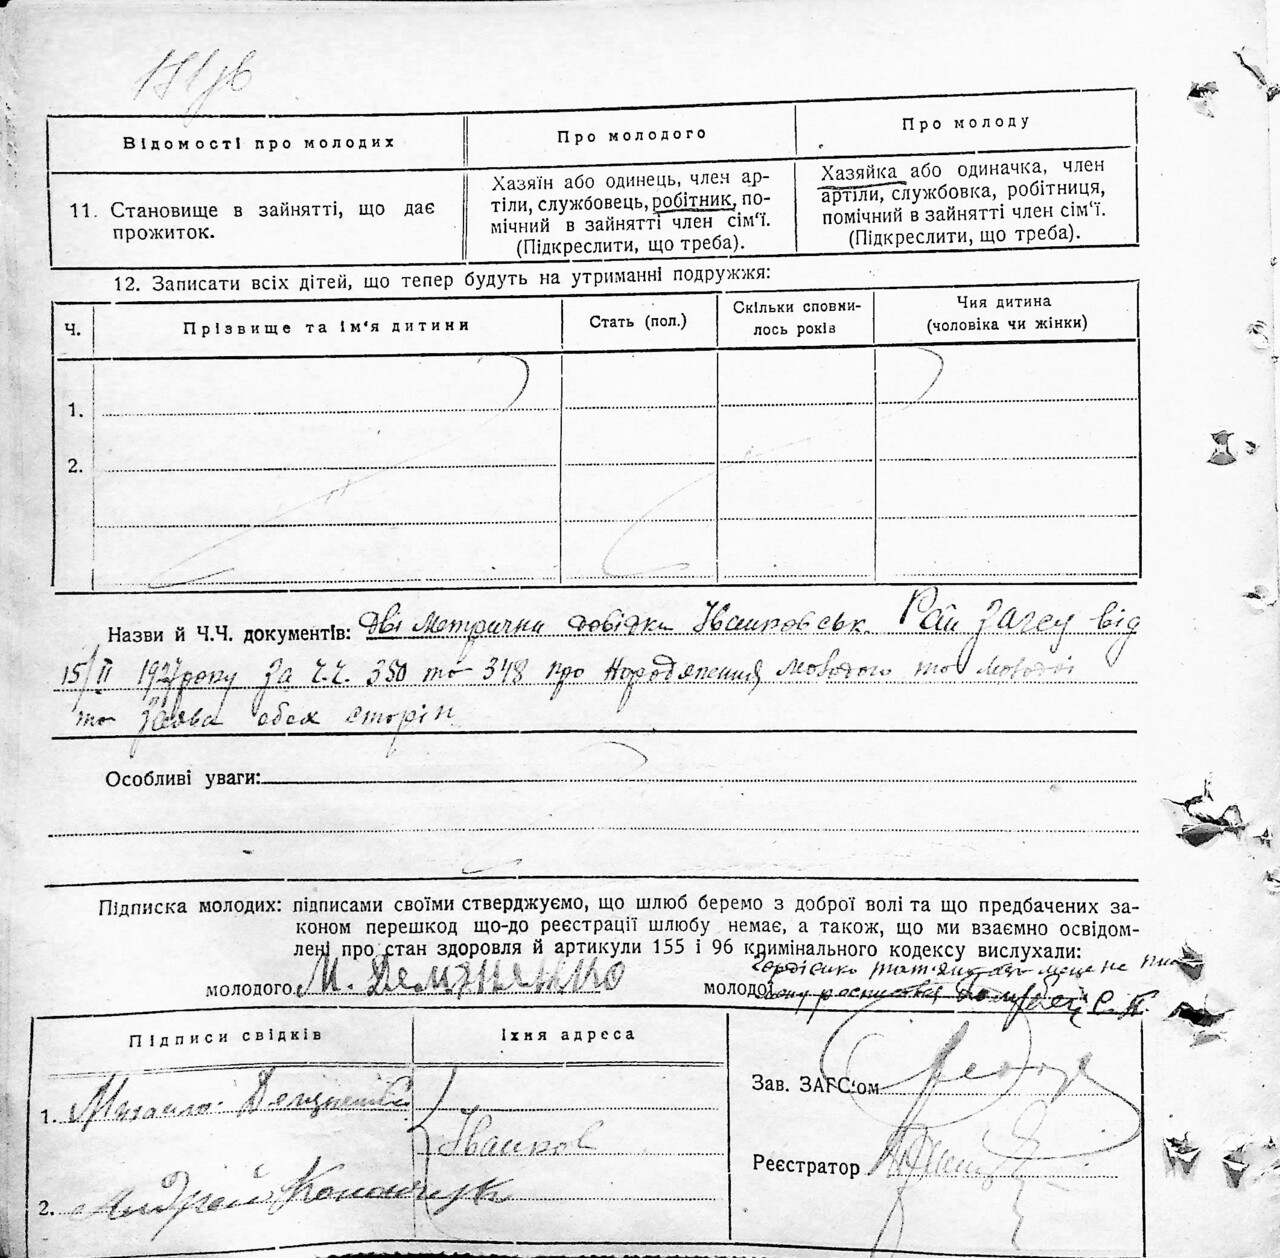 Відомості про молодих
Про молодого
Про молоду
11. Становище в зайнятті, що дає
прожиток.
Хазяїн або одинець, член ар-
тіли, службовець, робітник, по-
мічний в зайнятті член сім'ї.
(Підкреслити, що треба).
Хазяйка або одиначка, член
артіли, службовка, робітниця,
помічний в зайнятті член сім'ї.
(Підкреслити, що треба).
12. Записати всіх дітей, що тепер будуть на утриманні подружжя:
Ч.
Прізвище та ім'я дитини
Стать (пол.)
Скільки сповни-
лось років
Чия дитина
(чоловіка чи жінки)
1.
2.
Назви й Ч.Ч. документів: дві метричні довідки Іванковськ. Рай Загсу від
15/II 1927 року за ч.ч. 350 та 348 про народження молодого та молодої
та заява обох сторін
Особливі уваги:
Підписка молодих: підписами своїми стверджуємо, що шлюб беремо з доброї волі та що предбачених за-
коном перешкод що-до реєстрації шлюбу немає, а також, що ми взаємно освідом-
лені про стан здоровля й артикули 155 і 96 кримінального кодексу вислухали:
молодого М. Демяненко
молодої
Підписи свідків
Їхня адреса
1. Михаило
Іванков
2. Андрей
Зав. ЗАГС'ом
Реєстратор